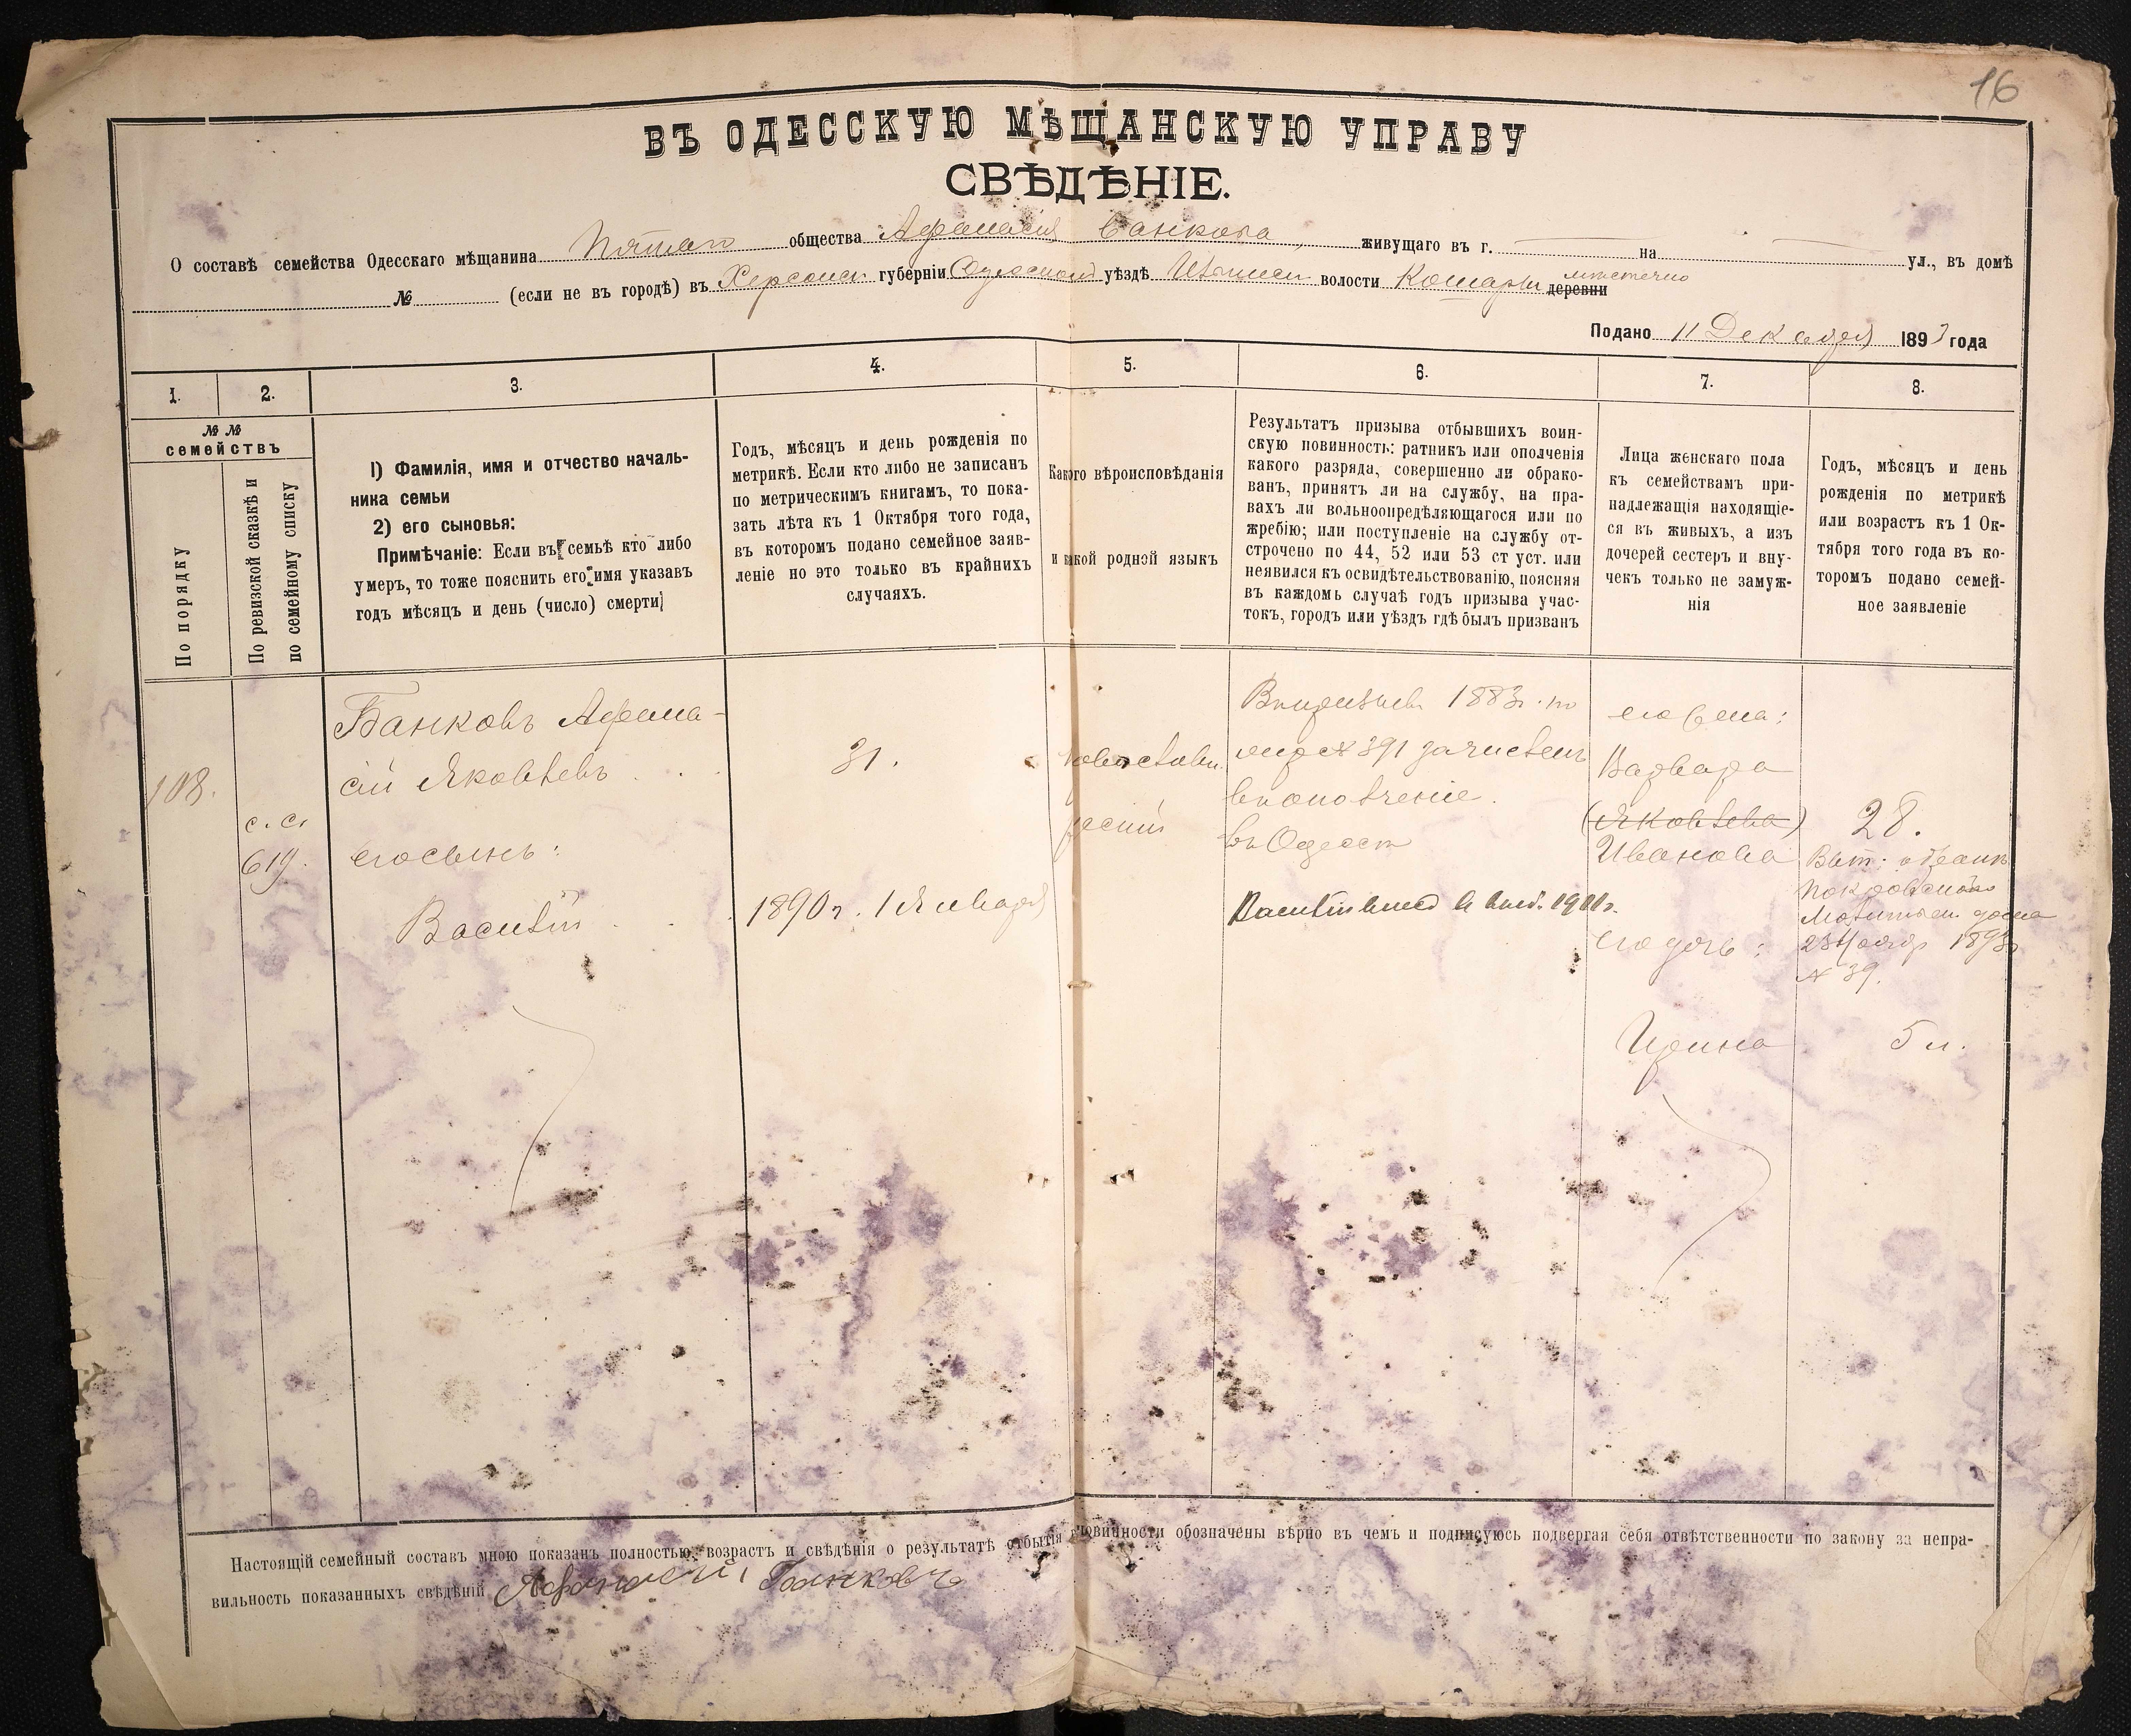 16
ВЪ ОДЕССКУЮ МѢЩАНСКУЮ УПРАВУ
СВѢДѢНІЕ.
О составѣ семейства Одесскаго мѣщанина Пятаго общества Афанасія Банкова, живущаго въ г. на ул., въ домѣ
№ (если не въ городѣ) въ Херсонск губерніи Одесскомъ уѣздѣ волости Кошары деревни мѣстечко
Подано 11 Декабря 1893 года
1. 2. 3. 4. 5. 6. 7. 8.
№ №
семействъ
По порядку
По ревизской сказкѣ и
по семейному списку
1) Фамилія, имя и отчество началь-
ника семьи
2) его сыновья:
Примѣчаніе: Если въ семьѣ кто либо
умеръ, то тоже пояснить его имя указавъ
годъ мѣсяцъ и день (число) смерти
Годъ, мѣсяцъ и день рожденія по
метрикѣ. Если кто либо не записанъ
по метрическимъ книгамъ, то пока-
зать лѣта къ 1 Октября того года,
въ которомъ подано семейное заяв-
леніе но это только въ крайнихъ
случаяхъ.
Какого вѣроисповѣданія
и какой родной языкъ
Результатъ призыва отбывшихъ воин-
скую повинность: ратникъ или ополченія
какого разряда, совершенно ли обрако-
ванъ, принятъ ли на службу, на пра-
вахъ ли вольноопредѣляющагося или по
жребію; или поступленіе на службу от-
строчено по 44, 52 или 53 ст уст. или
неявился къ освидѣтельствованію, поясняя
въ каждомъ случаѣ годъ призыва учас-
токъ, городъ или уѣздъ гдѣ былъ призванъ
Лица женскаго пола
къ семействамъ при-
надлежащія находящіе-
ся въ живыхъ, а изъ
дочерей сестеръ и вну-
чекъ только не замуж-
нія
Годъ, мѣсяцъ и день
рожденія по метрикѣ
или возрастъ къ 1 Ок-
тября того года въ ко-
торомъ подано семей-
ное заявленіе
108.
с. с.
619.
Банковъ Афана-
сій Яковлевъ
его сынъ:
Василій
31.
1890 г. 1 Января
1883 г. по
№ 391 зачисленъ
въ ополченіе.
въ Одессѣ
1911 г.
его жена:
Варвара
(Яковлева)
Иванова
его дочь:
Ирина
28.
Покровскаго
23 Ноябр 1893
№ 39.
5 л.
Настоящій семейный составъ мною показанъ полностью, возрастъ и свѣдѣнія о результатѣ отбытія повинности обозначены вѣрно въ чемъ и подписуюсь подвергая себя отвѣтственности по закону за непра-
вильность показанныхъ свѣдѣній Афанасій Банковъ